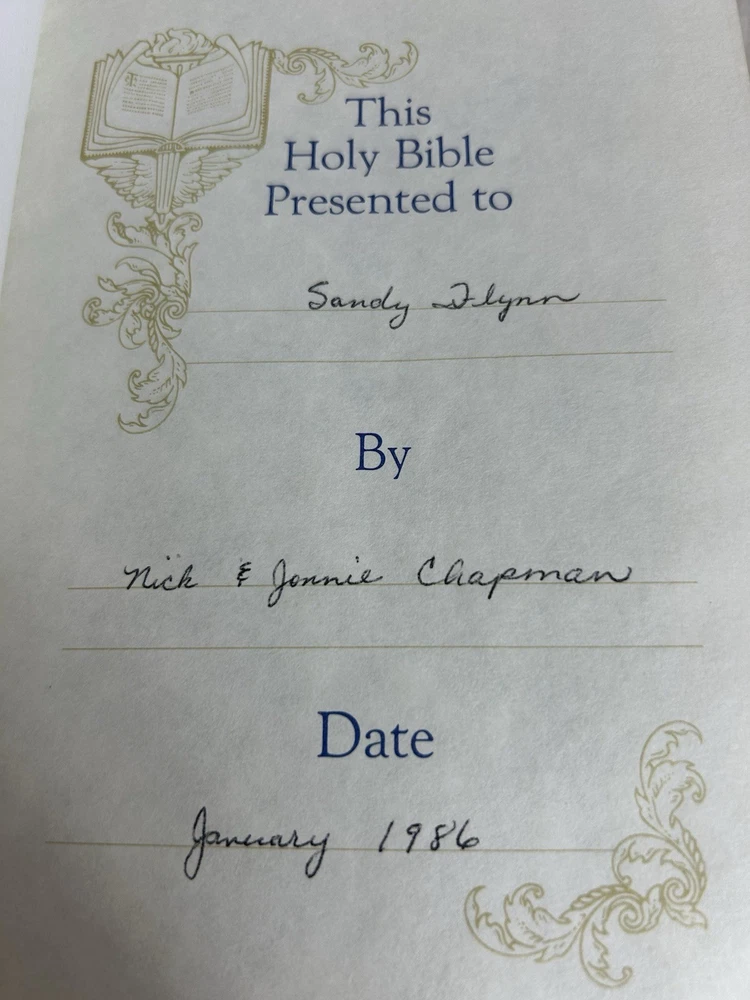 This
Holy Bible
Presented to
Sandy Flynn
By
Nick & Jonnie Chapman
Date
January 1986